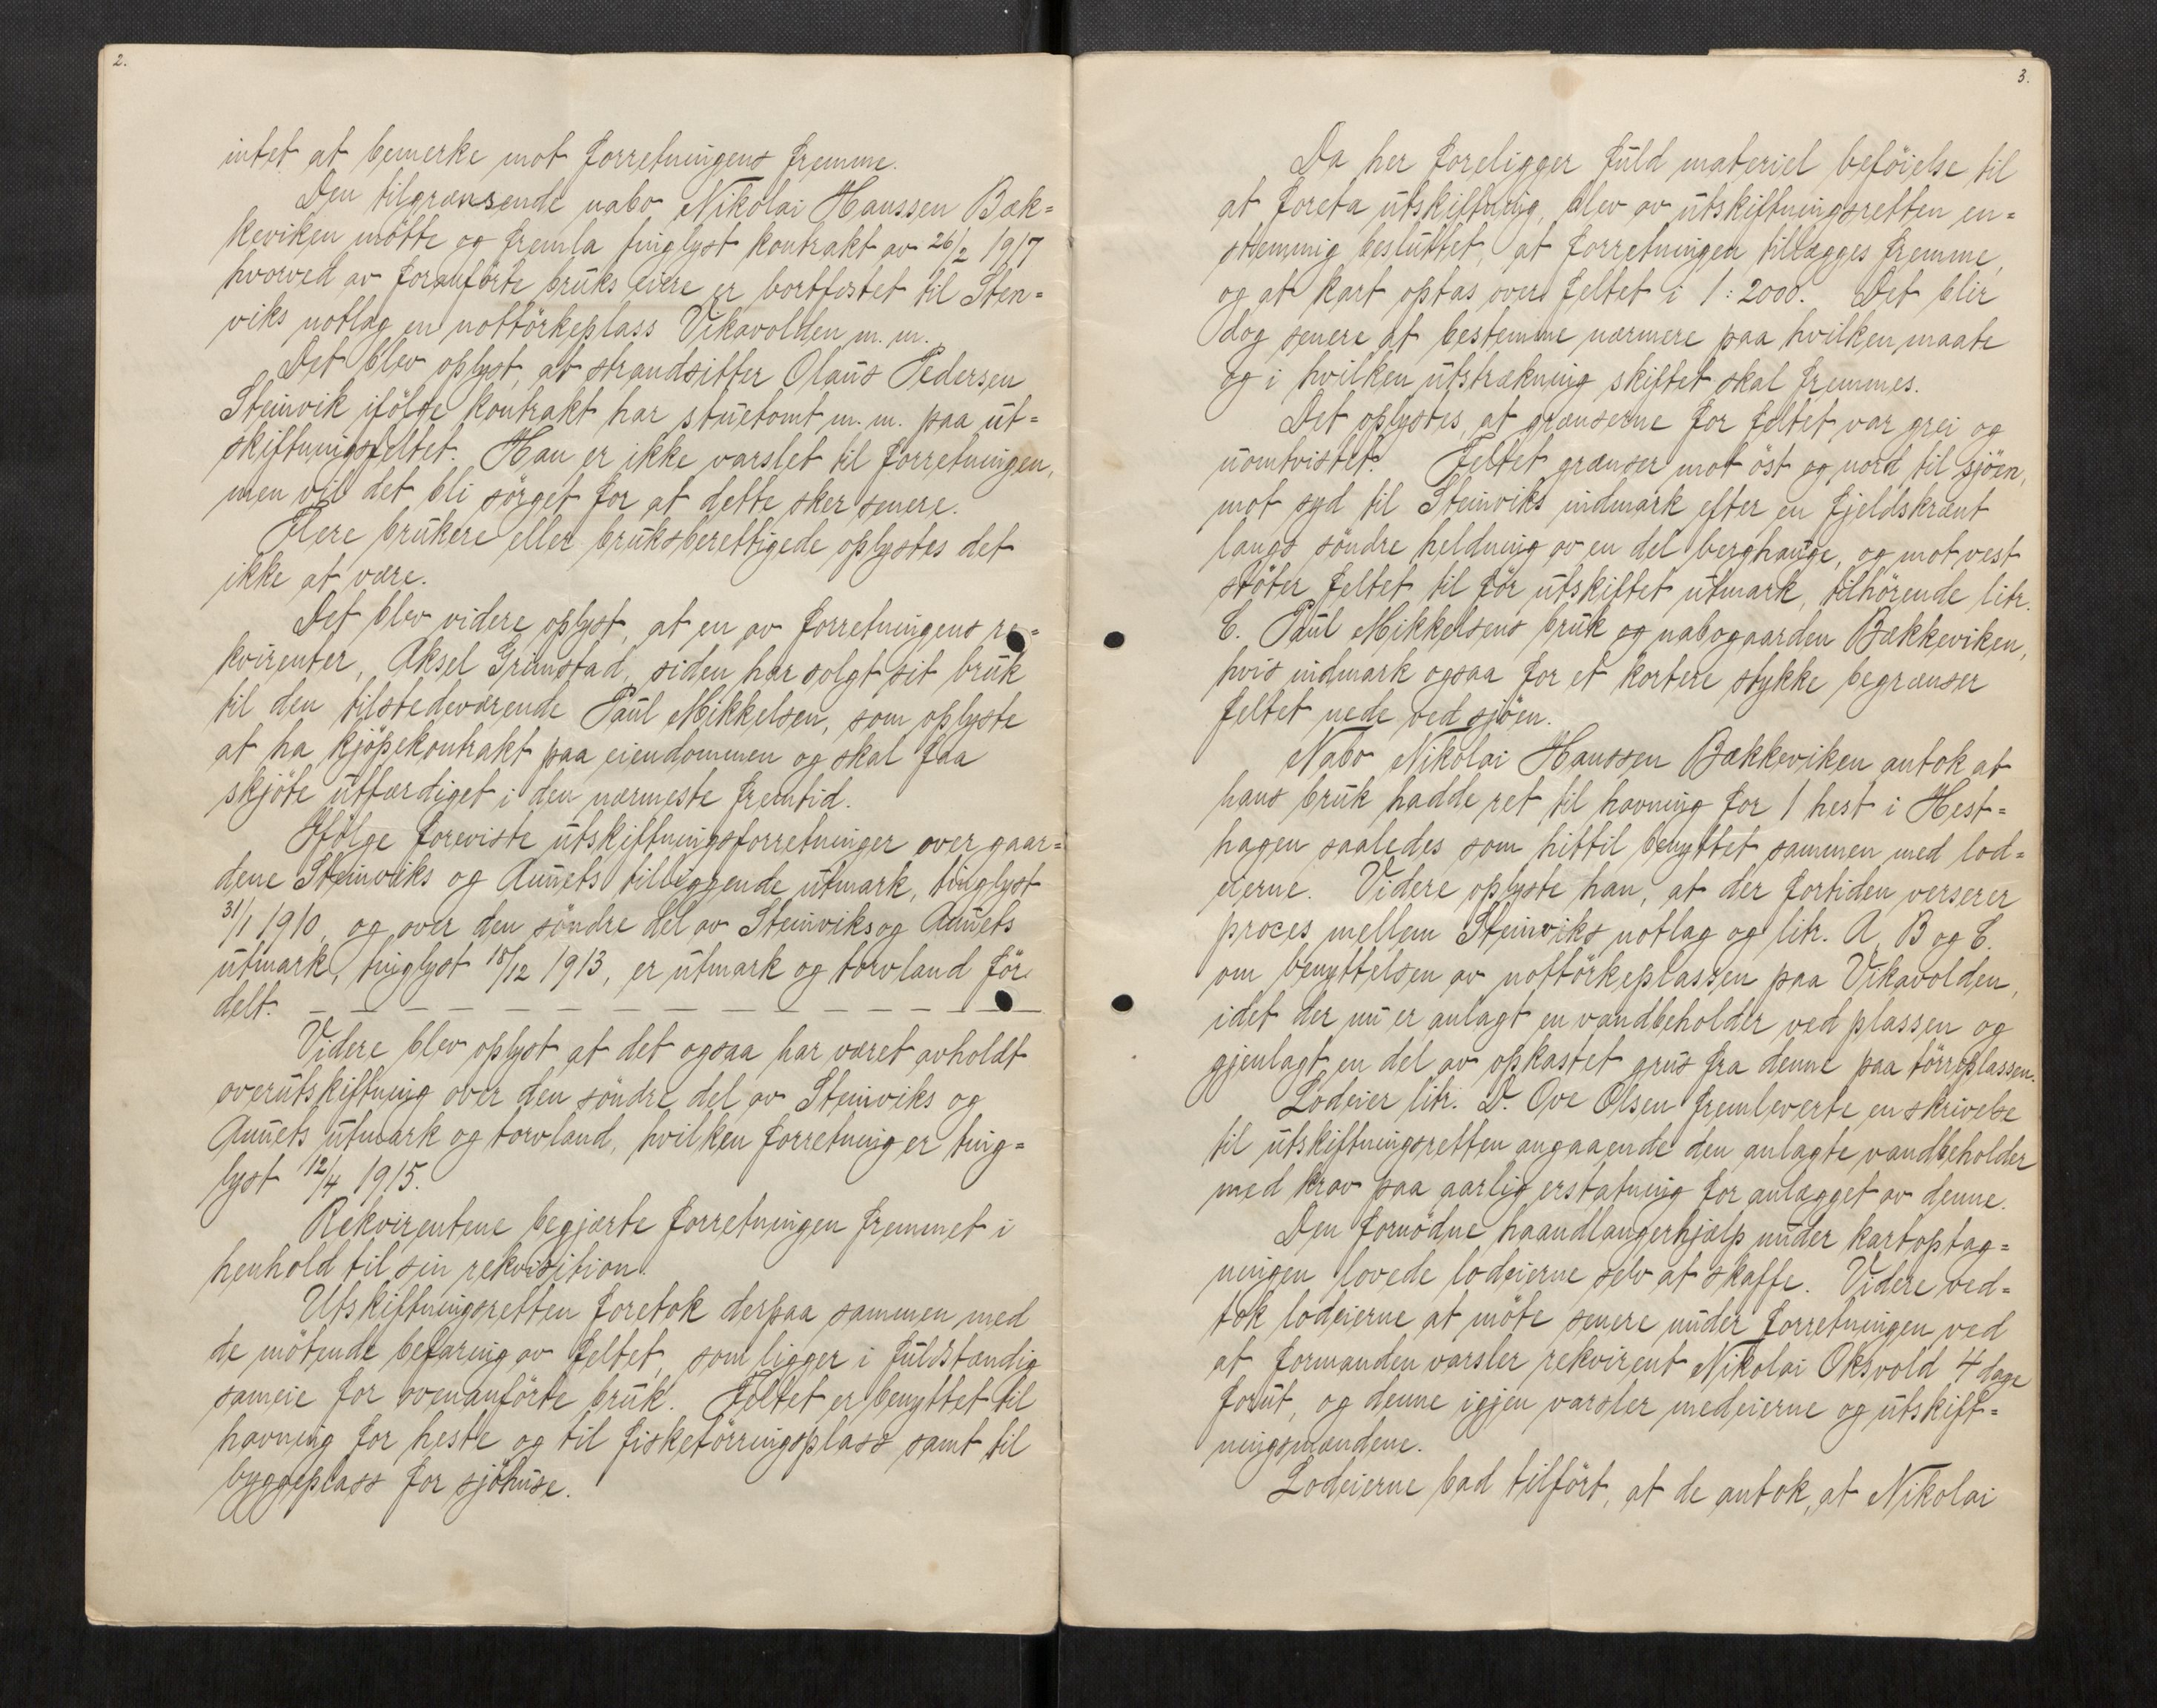 2.
intet at bemerke mot forretningens fremme.
Den tilgrænsende nabo Nikolai Hanssen Bæk=
keviken mötte og fremla tinglyst kontrakt av 26/2 1917
hvorved av foranförte bruks eiere er bortfestet til Sten=
viks notlag en nottörkeplass Vikavolden m. m.
Det blev oplyst, at strandsitter Olaus Pedersen
Steinvik ifölge kontrakt har stuetomt m. m. paa ut=
skiftningsfeltet. Han er ikke varslet til forretningen,
men vil det bli sörget for at dette sker senere.
Flere brukere eller bruksberettigede oplystes det
ikke at være.
Det blev videre oplyst, at en av forretningens re=
kvirenter, Aksel Grimstad, siden har solgt sit bruk
til den tilstedeværende Paul Mikkelsen, som oplyste
at ha kjöpekontrakt paa eiendommen og skal faa
skjöte utfærdiget i den nærmeste fremtid.
Ifölge foreviste utskiftningsforretninger over gaar=
dene Steinviks og Aunets tilliggende utmark, tinglyst
31/1 1910, og over den söndre del av Steinviks og Aunets
utmark, tinglyst 15/12 1913, er utmark og torvland för
delt. — — — — — — — — — — — — — —
Videre blev oplyst at det ogsaa har været avholdt
overutskiftning over den söndre del av Steinviks og
Aunets utmark og torvland, hvilken forretning er ting=
lyst 12/4 1915.
Rekvirentene begjærte forretningen fremmet i
henhold til sin rekvisition.
Utskiftningsretten foretok derpaa sammen med
de mötende befaring av feltet, som ligger i fuldstændig
sameie for ovenanförte bruk. Feltet er benyttet til
havning for heste og til fisketörringsplass samt til
byggeplass for sjöhuse.
3.
Da her foreligger fuld materiel beföielse til
at foreta utskiftning, blev av utskiftningsretten en=
stemmig besluttet, at forretningen tillægges fremme,
og at kart optas over feltet i 1:2000. Det blir
dog senere at bestemme nærmere paa hvilken maate
og i hvilken utstrækning skiftet skal fremmes.
Det oplystes, at grænserne for feltet var grei og
uomtvistet. Feltet grænser mot öst og nord til sjöen,
mot syd til Steinviks indmark efter en fjeldskrænt
langs söndre heldning av en del berghauge, og mot vest
stöter feltet til för utskiftet utmark, tilhörende litr.
C. Paul Mikkelsens bruk og nabogaarden Bækkeviken,
hvis indmark ogsaa for et kortere stykke begrænser
feltet nede ved sjöen.
Nabo Nikolai Hanssen Bækkeviken antok at
hans bruk hadde ret til havning for 1 hest i Hest=
hagen saaledes som hittil benyttet sammen med lod=
eierne. Videre oplyste han, at der fortiden verserer
proces mellem Steinviks notlag og litr. A, B og C.
om benyttelsen av nottörkeplassen paa Vikavolden,
idet der nu er anlagt en vandbeholder ved plassen og
gjenlagt en del av opkastet grus fra denne paa törreplassen.
Lodeier litr. D. Ove Olsen fremleverte en skrivelse
til utskiftningsretten angaaende den anlagte vandbeholder
med krav paa aarlig erstatning for anlægget av denne.
Den fornödne haandlangerhjælp under kartoptag=
ningen lovede lodeierne selv at skaffe. Videre ved=
tok lodeierne at möte senere under forretningen ved
at formanden varsler rekvirent Nikolai Oksvold 4 dage
forut, og denne igjen varsler medeierne og utskift=
ningsmændene.
Lodeierne bad tilfört, at de antok, at Nikolai